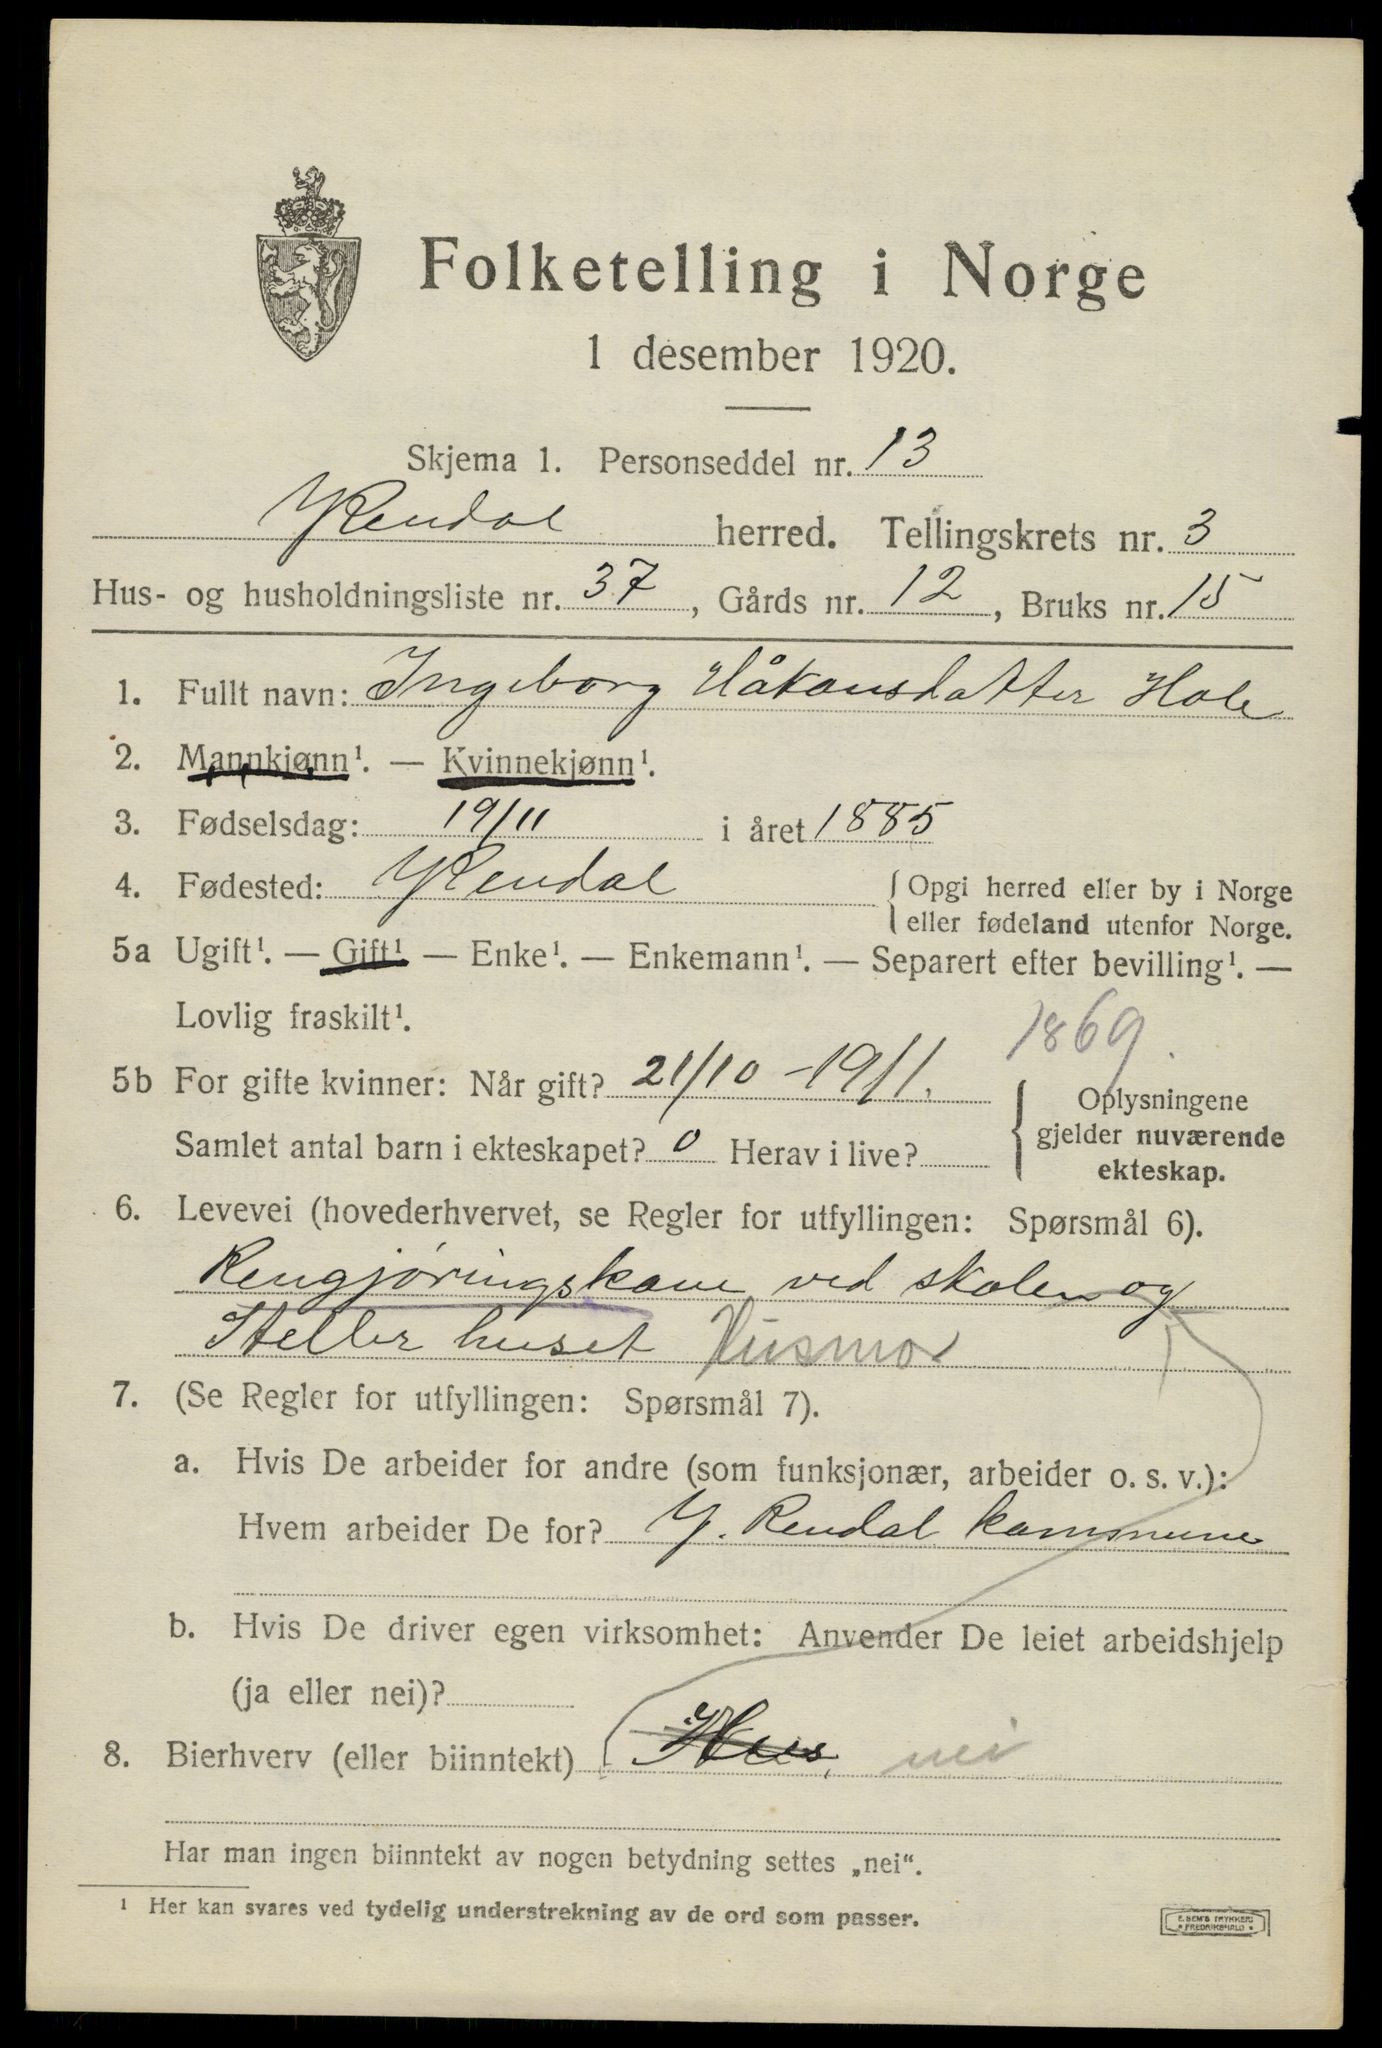 Folketelling i Norge
1 desember 1920.
Skjema 1. Personseddel nr. 13
YRendal herred. Tellingskrets nr. 3
Hus- og husholdningsliste nr. 37, Gårds nr. 12, Bruks nr. 15
1. Fullt navn: Ingeborg Håkonsdatter Hole
2. Mannkjønn¹. — Kvinnekjønn¹.
3. Fødselsdag: 19/11 i året 1885
4. Fødested: YRendal {Opgi herred eller by i Norge
eller fødeland utenfor Norge.
5a Ugift¹. — Gift¹ — Enke¹. — Enkemann¹. — Separert efter bevilling¹. —
Lovlig fraskilt¹.
1869.
5b For gifte kvinner: Når gift? 21/10 - 1911.
Samlet antal barn i ekteskapet? 0 Herav i live?
{Oplysningene
gjelder nuværende
ekteskap.
6. Levevei (hovederhvervet, se Regler for utfyllingen: Spørsmål 6).
Rengjøringskone ved skolen og
Steller huset Husmor
7. (Se Regler for utfyllingen: Spørsmål 7).
a. Hvis De arbeider for andre (som funksjonær, arbeider o. s. v.):
Hvem arbeider De for? Y. Rendal kommune
b. Hvis De driver egen virksomhet: Anvender De leiet arbeidshjelp
(ja eller nei)?
8. Bierhverv (eller biinntekt) Hus, nei
Har man ingen biinntekt av nogen betydning settes „nei“.
¹ Her kan svares ved tydelig understrekning av de ord som passer.
E. SEM'S TRYKKERI
FREDRIKSHALD